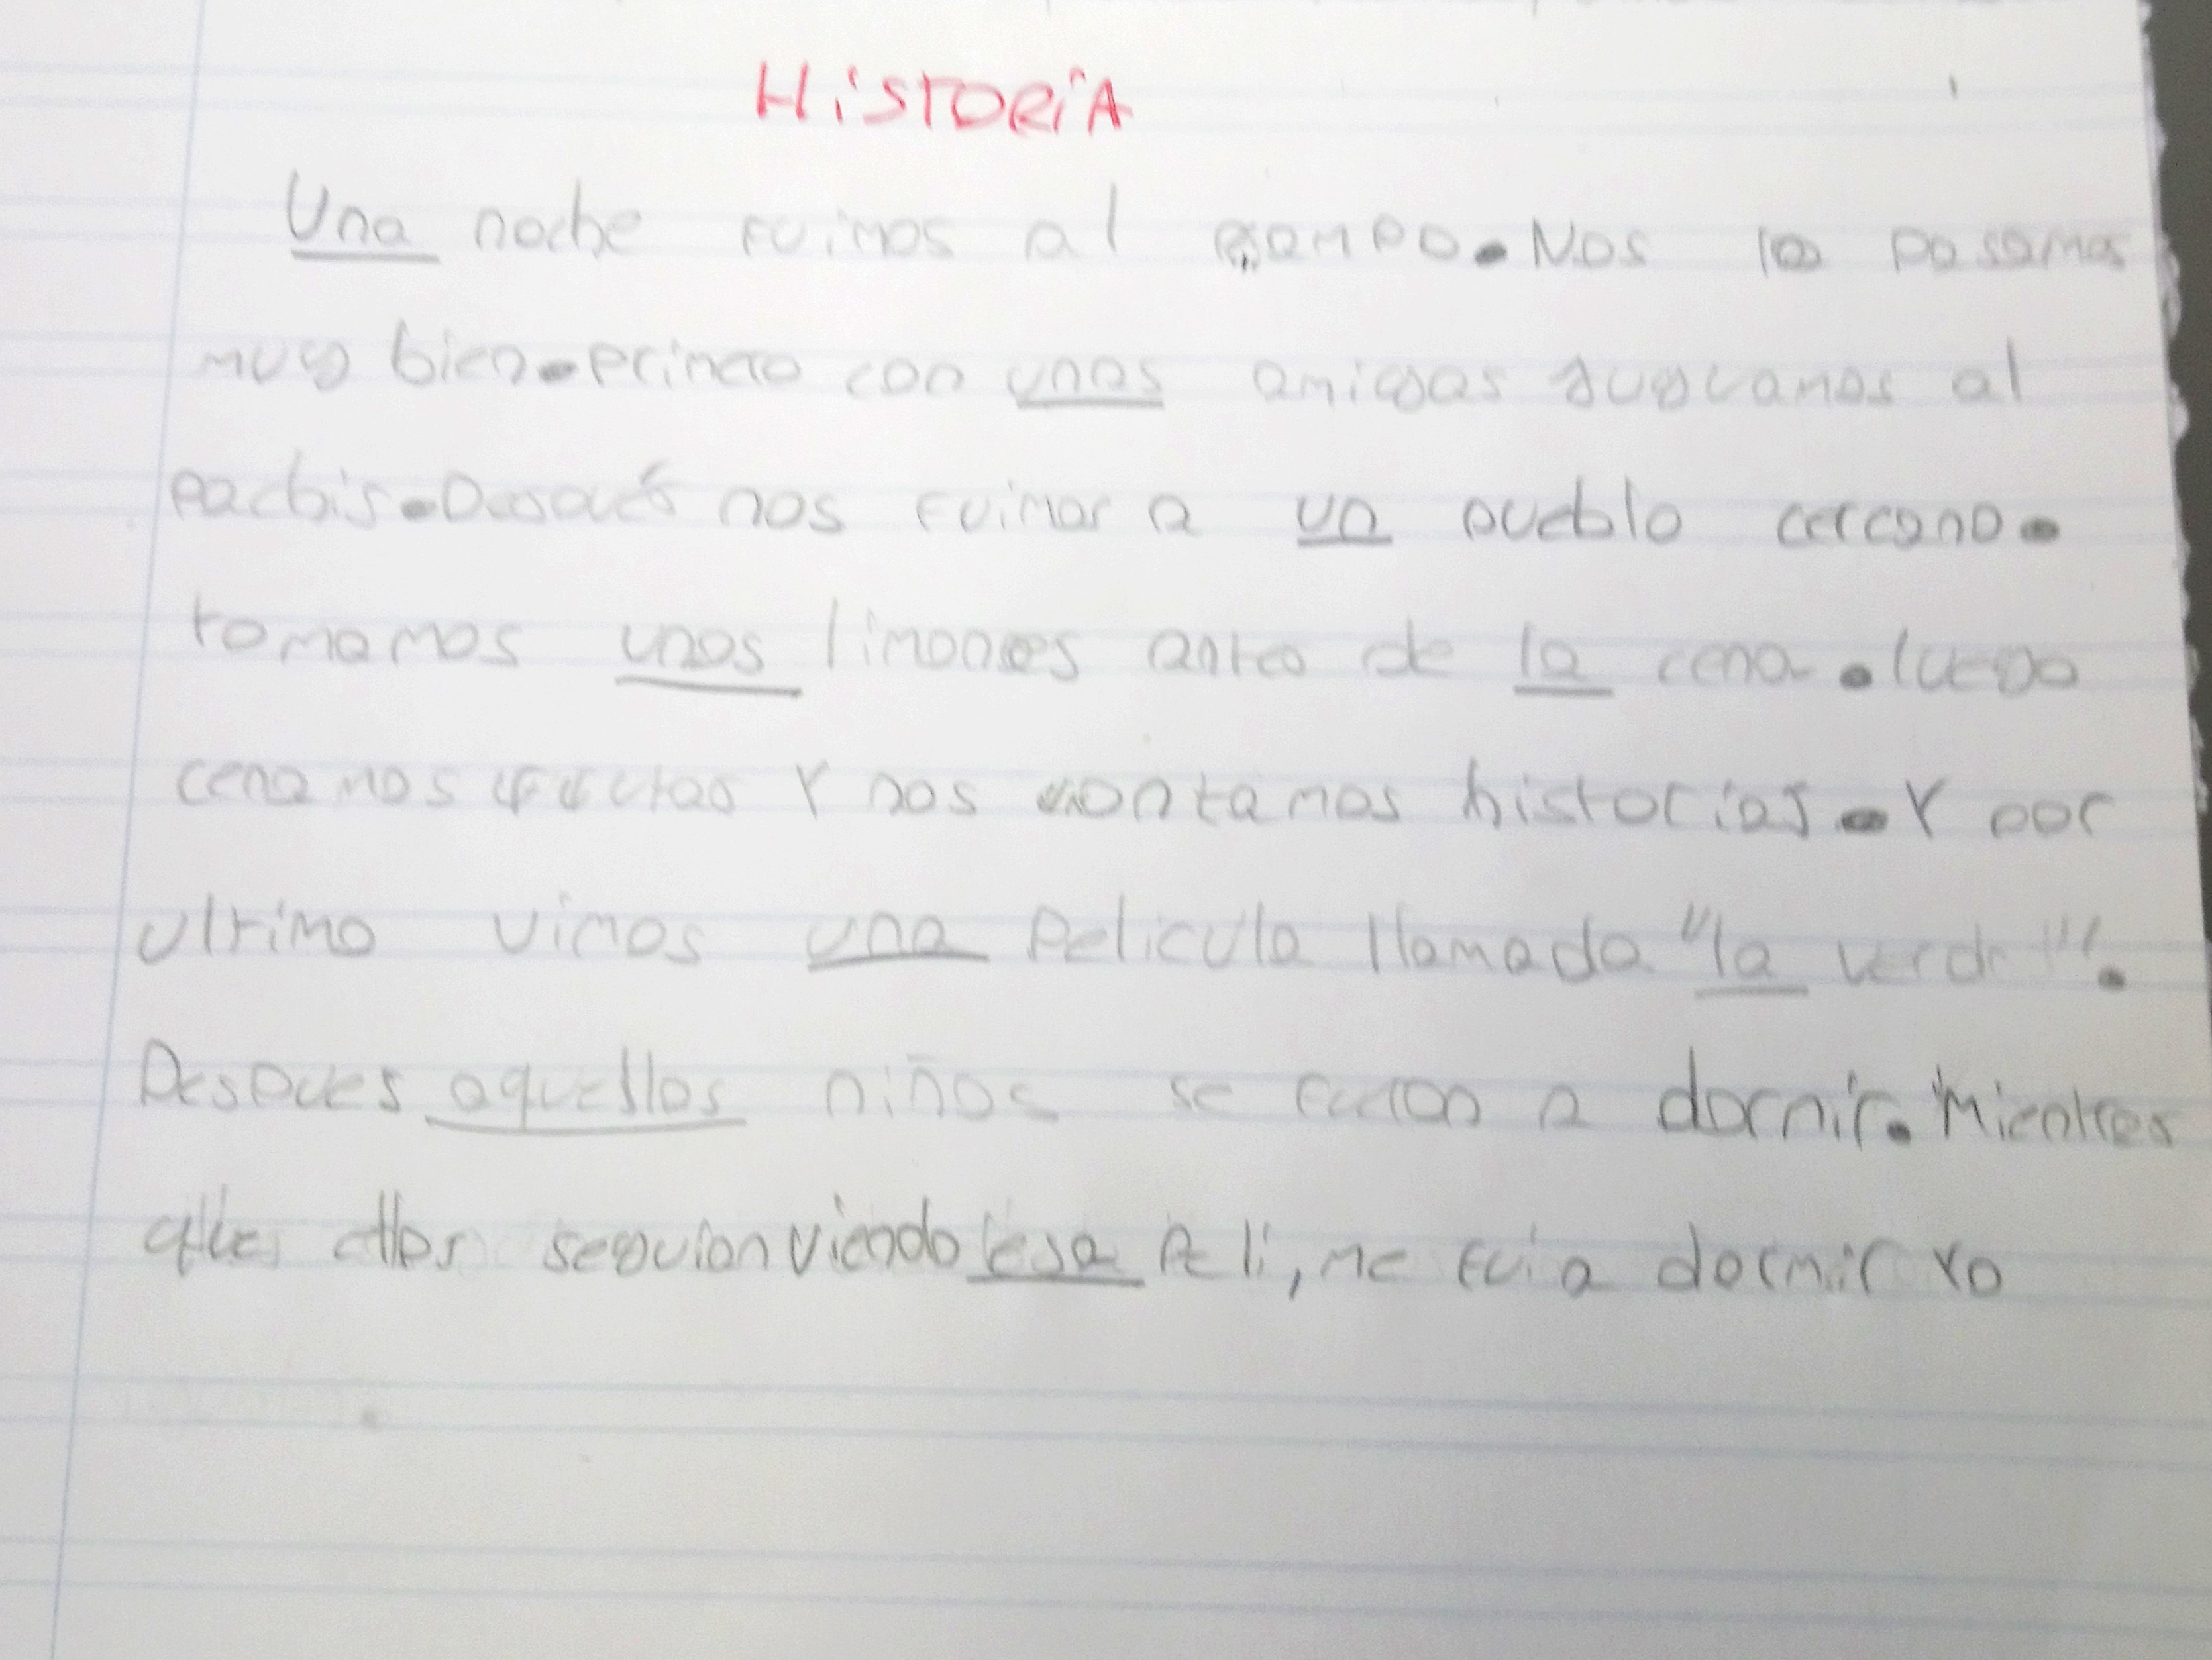 HiSTORiA
Una noche fuimos al campo. Nos lo pasamos
muy bien. Primero con unos amigos jugamos al
Parchis. Después nos fuimos a un pueblo cercano.
tomamos unos limones antes de la cena. luego
cenamos frutas Y nos contamos historias. Y por
ultimo vimos una Pelicula llamada "la verdad".
Despues aquellos niños se fueron a dormir. Mientras
que ellos seguian viendo esa Peli, me fui a dormir Yo